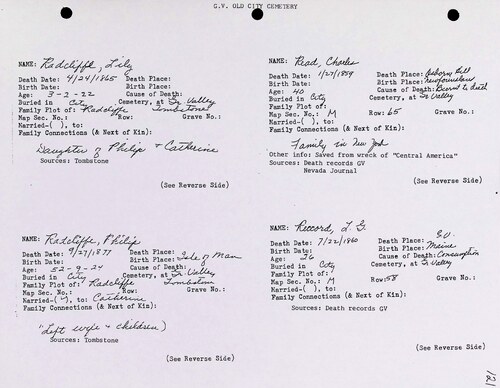 G.V. OLD CITY CEMETERY
NAME: Radcliffe, Lily
Death Date: 4/24/1865 Death Place:
Birth Date: Birth Place:
Age: 3-2-22 Cause of Death:
Buried in City Cemetery, at Gr. Valley
Family Plot of: Radcliffe Tombstone
Map Sec. No.: Row: Grave No.:
Married-( ), to:
Family Connections (& Next of Kin):
Daughter of Philip & Catherine
Sources: Tombstone
(See Reverse Side)
NAME: Read, Charles
Death Date: 1/27/1859 Death Place: Osborn Hill
Birth Date: Birth Place: Newfoundland
Age: 40 Cause of Death: Burned to death
Buried in City Cemetery, at Gr Valley
Family Plot of:
Map Sec. No.: M Row: 65 Grave No.:
Married-( ), to:
Family Connections (& Next of Kin):
Family in New York
Other info: Saved from wreck of "Central America"
Sources: Death records GV
Nevada Journal
(See Reverse Side)
NAME: Radcliffe, Philip
Death Date: 9/27/1877 Death Place:
Birth Date: Birth Place: Isle of Man
Age: 52-9-24 Cause of Death:
Buried in City Cemetery, at Gr. Valley
Family Plot of: Radcliffe Tombstone
Map Sec. No.: Row: Grave No.:
Married-(M), to: Catherine
Family Connections (& Next of Kin):
"Left wife & children)
Sources: Tombstone
(See Reverse Side)
NAME: Record, L. G.
Death Date: 7/22/1860 Death Place: G.V.
Birth Date: Birth Place: Maine
Age: 26 Cause of Death: Consumption
Buried in City Cemetery, at Gr Valley
Family Plot of:
Map Sec. No.: M Row: 58 Grave No.:
Married-( ), to:
Family Connections (& Next of Kin):
Sources: Death records GV
(See Reverse Side)